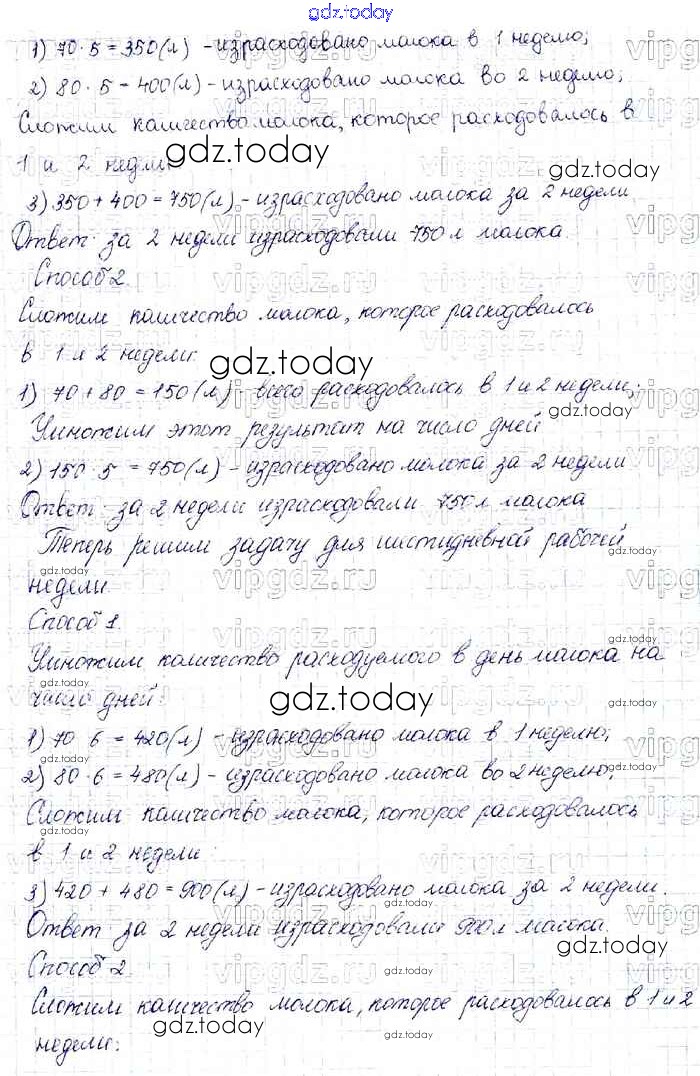 gdz.today
1) 70·5=350(л) - израсходовано молока в 1 неделю;
2) 80·5=400(л) - израсходовано молока во 2 неделю;
Сложим количество молока, которое расходовалось в
1 и 2 недели
gdz.today
3) 350+400=750(л) - израсходовано молока за 2 недели
Ответ: за 2 недели израсходовали 750 л молока.
Способ 2.
Сложим количество молока, которое расходовалось
в 1 и 2 недели:
gdz.today
1) 70+80=150(л) - всего расходовалось в 1 и 2 недели;
Умножим этот результат на число дней
2) 150·5=750(л) - израсходовано молока за 2 недели
Ответ: за 2 недели израсходовали 750 л молока
Теперь решим задачу для шестидневной рабочей
недели.
Способ 1.
Умножим количество расходуемого в день молока на
число дней:
gdz.today
1) 70·6=420(л) - израсходовано молока в 1 неделю;
2) 80·6=480(л) - израсходовано молока во 2 неделю;
Сложим количество молока, которое расходовалось
в 1 и 2 недели:
3) 420+480=900(л) - израсходовано молока за 2 недели.
Ответ: за 2 недели израсходовали 900 л молока.
Способ 2.
Сложим количество молока, которое расходовалось в 1 и 2
недели:
gdz.today